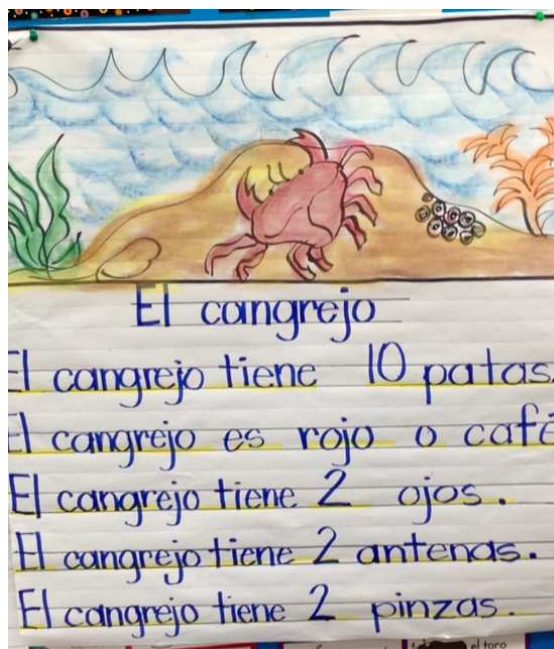 El cangrejo
El cangrejo tiene 10 patas.
El cangrejo es rojo o café
El cangrejo tiene 2 ojos.
El cangrejo tiene 2 antenas.
El cangrejo tiene 2 pinzas.
el toro